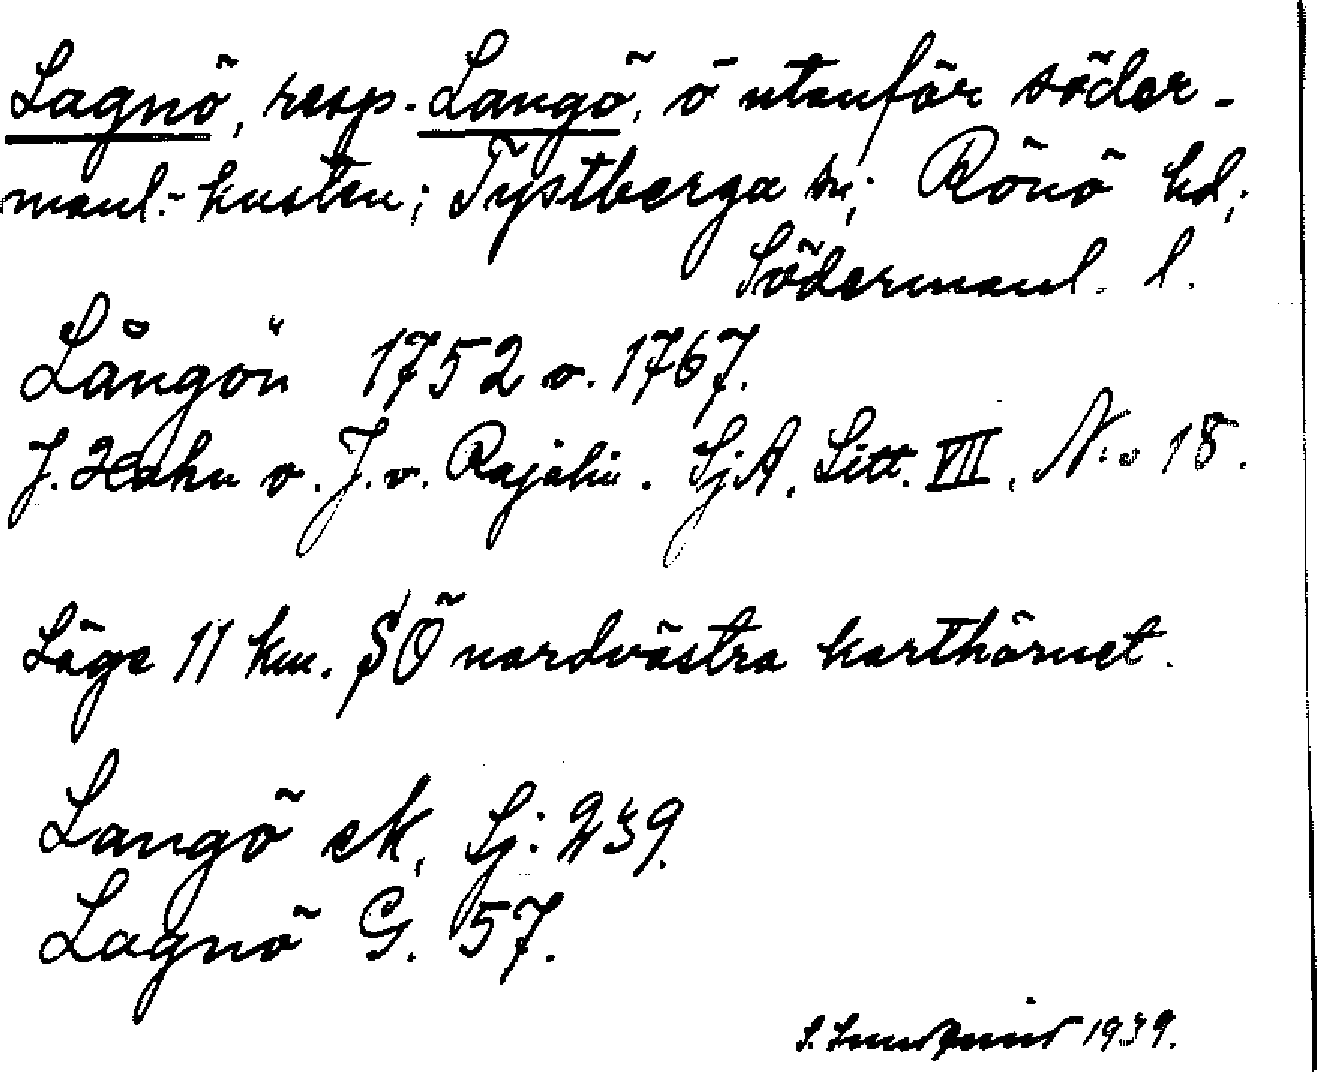 Lagnö, resp. Langö, ö utanför söder-
manl.-kusten; Tystberga sn; Rönö hd;
Södermanl. l.
Långön 1752 o. 1767.
J. Hahn o. J. v. Rajalin. SjA, Litt. VII, N:o 18.
Läge 11 km. SÖ nordvästra karthörnet.
Langö ek, Sj: 239.
Lagnö G. 57.
1939.